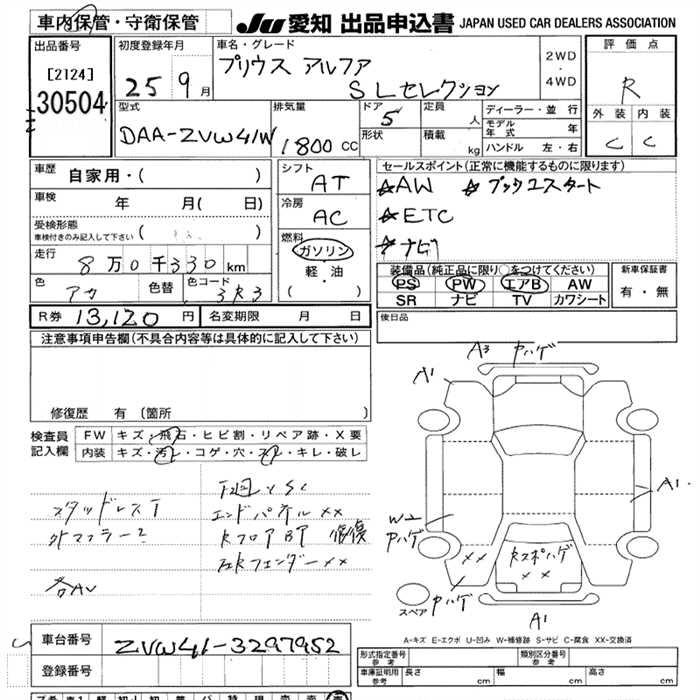 車内保管・守衛保管
JU 愛知 出品申込書 JAPAN USED CAR DEALERS ASSOCIATION
出品番号
[2124]
30504
初度登録年月
25 9 月
車名・グレード
プリウス アルファ
S Lセレクション
2WD
・
4WD
評価点
R
外装 内装
C C
型式
DAA-ZVW41W
排気量
1800 CC
ドア
5
形状
定員
人
積載
kg
ディーラー・並行
モデル年式 年
ハンドル 左・右
車歴
自家用・( )
車検
年 月( 日)
受検形態
車検付きのみ記入して下さい ( )
走行
8 万 0 千 330 km
色
アカ
色替
色コード
3R3
シフト
AT
冷房
AC
燃料
ガソリン
・
軽・油
( )
セールスポイント(正常に機能するものに限ります)
☆AW ☆プッシュスタート
☆ETC
☆ナビ
装備品(純正品に限り○をつけてください)
PS PW エアB AW
SR ナビ TV カワシート
新車保証書
有・無
R券 13,120 円
名変期限 月 日
後日品
注意事項申告欄(不具合内容等は具体的に記入して下さい)
修復歴 有 〔箇所 〕
検査員
記入欄
FW キズ・飛石・ヒビ割・リペア跡・X要
内装 キズ・汚レ・コゲ・穴・スレ・キレ・破レ
下回りSC
スタッドレスT
エンドパネルXX
外マフラー
RフロアBP 修復
左Rフェンダー XX
各AU
A3 中ハゲ
A1
A1.
W2
中ハゲ
XX
Rスポハゲ
XX
中ハゲ
スペア
A1
A-キズ E-エクボ U-凹み W-補修跡 S-サビ C-腐食 XX-交換済
車台番号
ZVW41-3297952
登録番号
形式指定番号
参考
類別区分番号
参考
車庫証明用
参考
長さ cm
幅 cm
高さ cm